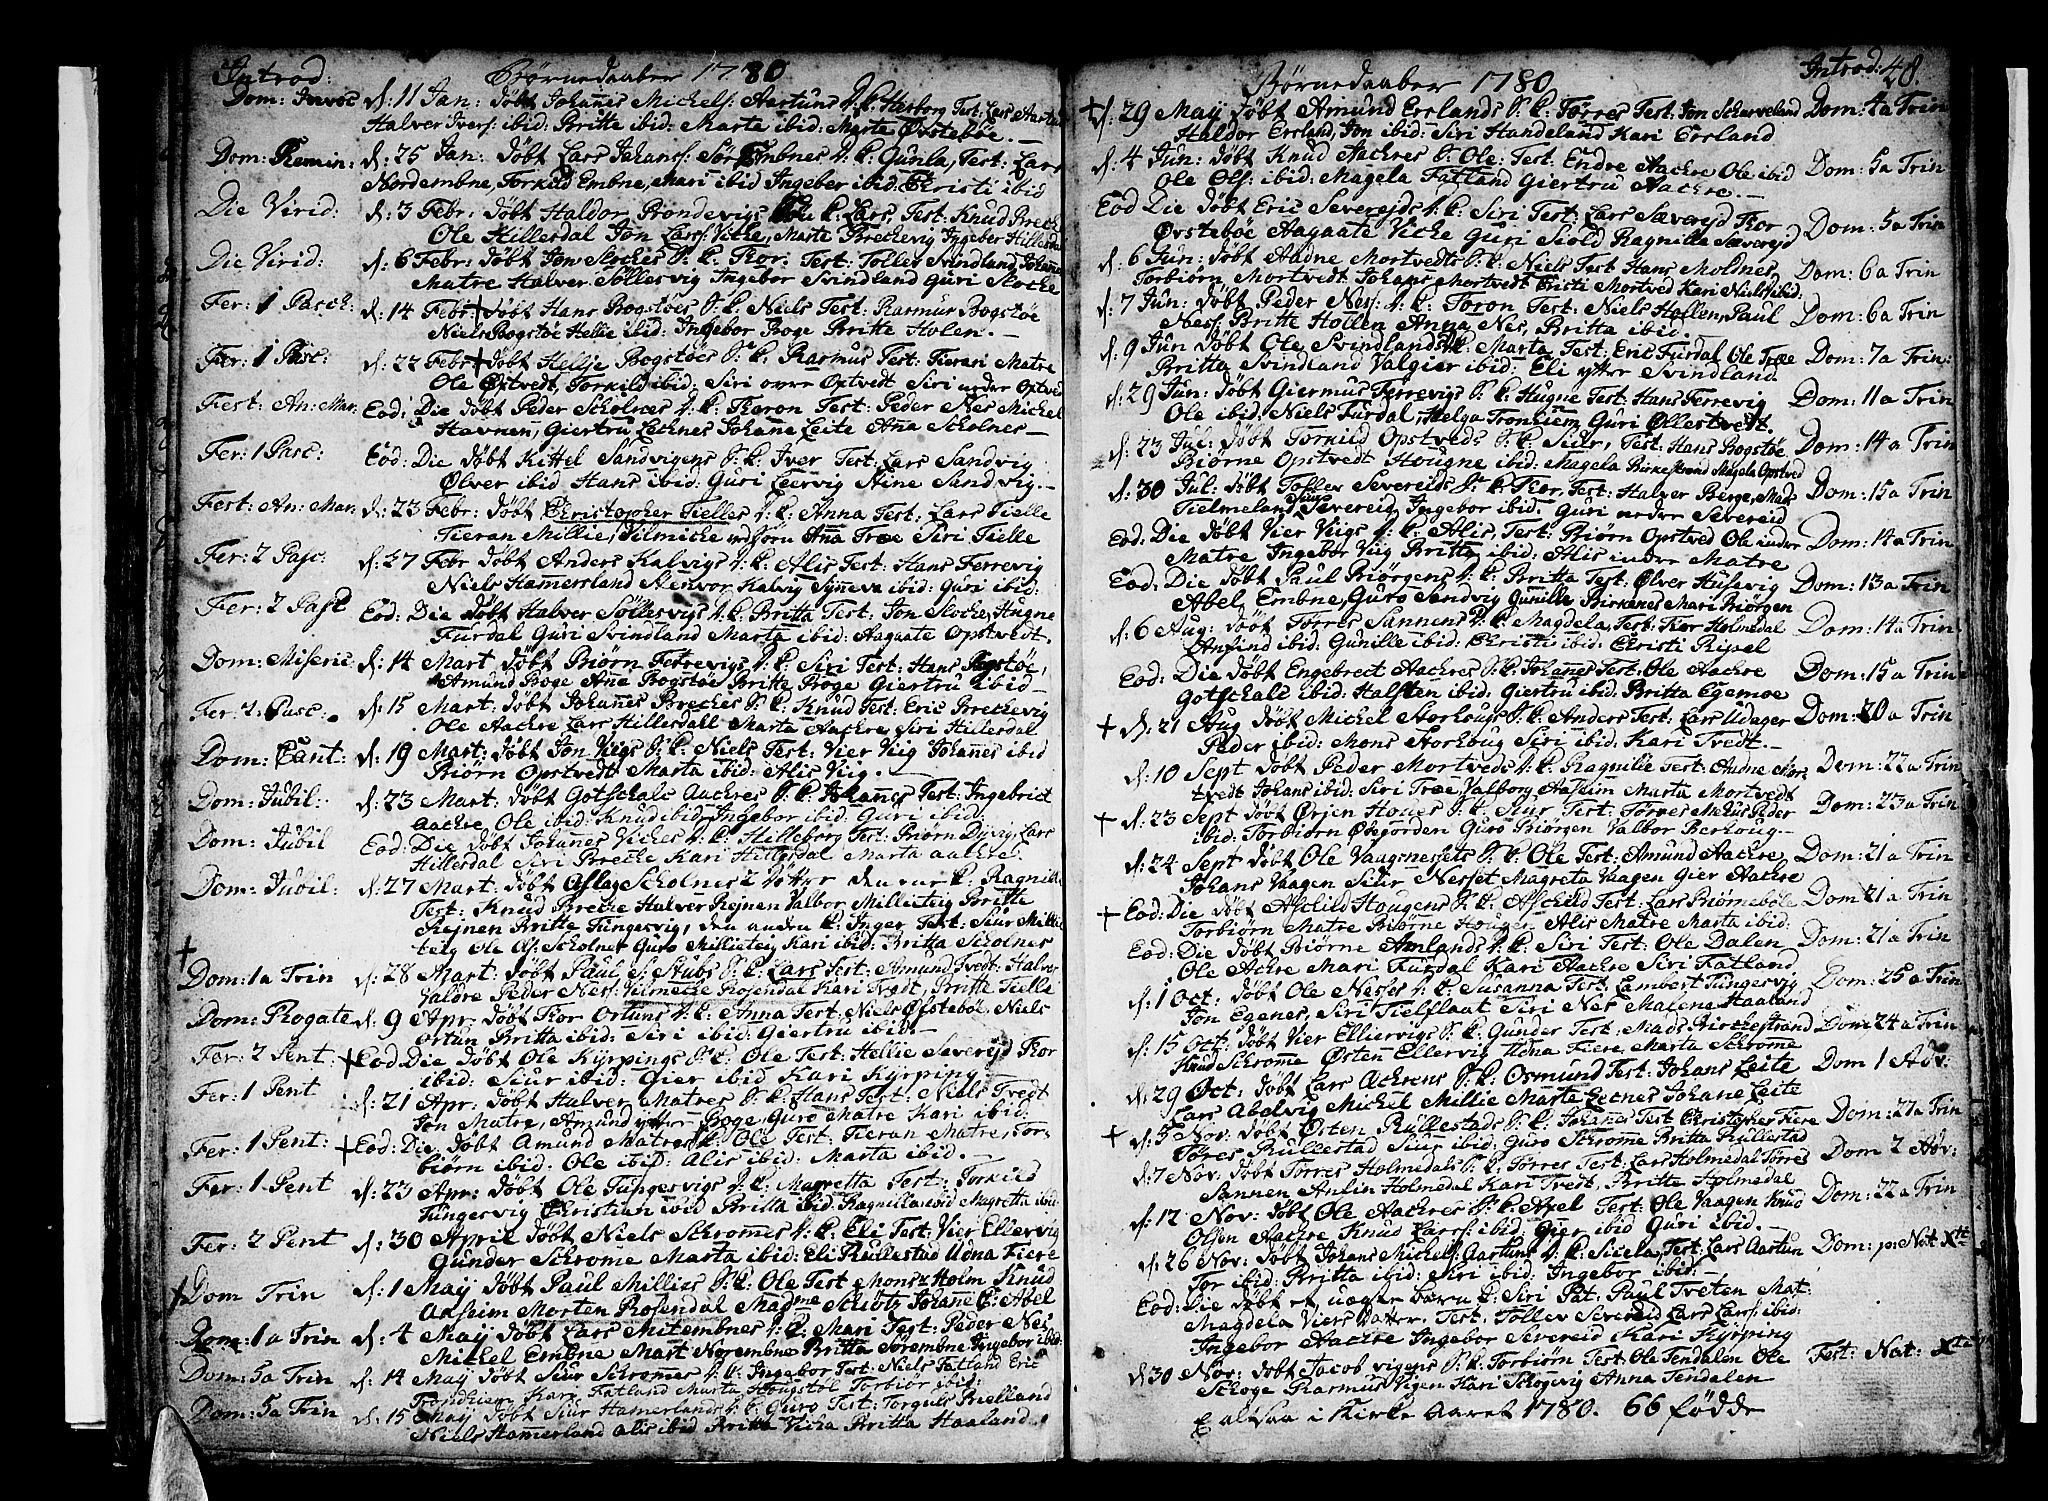 Introd: Børnedaaber 1780
Dom: Invoc d: 11 Jan: døbt Johannes Michels: Aartuns S. k. Herborg Test: Lars Aartun
Halver Ivers: ibid: Britte ibid: Marte ibid: Marte Østebøe.
Dom: Remin: d: 25 Jan: døbt Lars Johans: Sør Embnes d. k. Gunla, Test: Lars
Nordembne, Torkild Embne, Mari ibid Ingeber ibid: Christi ibid
Die Virid: d: 3 Febr: døbt Haldor Rondevigs k. Lars, Test: Knud Breche
Ole Hillerdal Jon Lars: Viche, Marte Brechevig Ingeber Hillerdal
Die Virid: d: 6 Febr: døbt Jon Sloches S. k. Thor. Test: Tollev Svindland Johannes
Matre Halver Søllesvig Ingebor Svindland Guri Sloche
Fer: 1 Pasch: d: 14 Febr: † døbt Hans Bogstøes S. k. Niels Test: Rasmus Bogstøe
Niels Bogstøe Hellie ibid: Ingebor Boge Britte Holen.
Fer: 1 Pasc: d: 22 Febr † døbt Hellje Bogstøes S. k. Rasmus Test: Tieran Matre
Ole Opstvedt, Torkild ibid: Siri øvre Opstvedt Siri nedre Opstved
Fest: An: Mar. Eod: Die døbt Peder Scholnes d. k. Toron Test: Peder Nes Michel
Havnen, Giertru Lechnes Johanne Leite Anna Scholnes
Fer: 1 Pasc: Eod: Die døbt Kittel Sandvigens S. k. Iver Test: Lars Sandvig
Ølver ibid Hans ibid: Guri Leervig Stine Sandvig.
Fest: An: Mar. d: 23 Febr: døbt Christopher Tielles d. k. Anna Test: Lars Tielle
Tieran Millie, Anna Træ Siri Tielle
Fer: 2 Pasc: d: 27 Febr døbt Anders Kalvigs d. k. Alis Test: Hans Ferrevig
Niels Hamersland Stenvor Kalvig Synneva ibid: Guri ibid:
Fer: 2 Pasc Eod: Die døbt Halver Søllesvigs d. k. Britta Test: Jon Sloche, Hugne
Furdal Guri Svindland Marta ibid: Aagaate Opstvedt.
Dom: Miseric d: 14 Mart døbt Biørn Ferrevigs d. k. Siri Test: Hans Bogstøe,
Amund Boge Anna Bogstøe Britte Boge Giertru ibid
Fer: 2. Pasc: d: 15 Mart: døbt Johannes Breches S. k. Knud Test: Eric Brechevig
Ole Aachre Lars Hillerdal Marta Aachre, Siri Hillerdal
Dom: Cant: d: 19 Mart: døbt Jon Viigs S. k. Niels Test: Vier Viig Johannes ibid
Biørn Opstvedt Marta ibid: Alis Viig.
Dom: Jubil: d: 23 Mart: døbt Gotschalc Aachres S. k. Johannes Test: Ingebrict
Aachre Ole ibid: Knud ibid: Ingebor ibid: Guri ibid:
Dom: Jubil Eod: Die døbt Johannes Viches d. k. Hilleborg Test: Biørn Dyvig, Lars
Hillerdal Siri Breche Kari Hillerdal Marta Aachre.
Dom: Jubil: d: 27 Mart: døbt Aslag Scholnes 2 Døttr den ene k. Ragnille
Test: Knud Breche Halver Rejnen Valbor Millieteig Britte
Rejnen Britte Tungesvig, den anden k. Inger Test: Siur Millie
teig Ole Ols: Scholnes Guro Millieteig Kari ibid: Britta Scholnes
† Dom: 1 a Trin d: 28 Mart: døbt Paul S. Stubs S. k. Lars Test: Amund Tvedt, Halver
Valdre Peder Ness: Vilmeche Rosendal Kari Tvedt, Britte Tielle
Dom: Rogate d: 9 Apr: døbt Thor Ortuns d. k. Anna Test: Niels Østebøe, Niels
Ortun Britta ibid: Siri ibid: Giertru ibid:
Fer: 2 Pent: † Eod Die døbt Ole Kyrpings S. k. Ole Test: Hellie Severejd Thor
ibid: Siur ibid: Gier ibid Kari Kyrping
Fer: 1 Pent d: 21 Apr: døbt Halver Matres S. k. Hans Test: Niels Tvedt
Jon Matre, Amund yttre Boge, Guro Matre Kari ibid:
Fer: 1 Pent: † Eod: Die døbt Amund Matres k. Ole Test: Tieran Matre, Tor-
biørn ibid: Ole ibid: Alis ibid: Marta ibid.
Fer: 1 Pent d: 23 Apr: døbt Ole Tungesvigs d. k. Magretta Test: Torkild
Tungesvig Christian ibid Britta ibid Ragnilla ibid Magretta ibid
Fer: 2 Pent d: 30 April døbt Niels Schromes d. k. Eli Test: Vier Ellervig
Gunder Schrome Marta ibid: Eli Rullestad Udna Fiere
† Dom Trin d: 1 May døbt Paul Millies S. k. Ole Test Mons Holm Knud
Axheim Morten Rosendal Madme Schiøtz Johanne C: Abel
Dom: 1 a Trin d: 4 May døbt Lars Mitembnes d. k. Mari Test: Peder Nes
Michel Embne Mart Norembne Britta Sorembne Ingebor ibid:
Dom: 5 a Trin d: 14 May døbt Siur Schromes d. k. Ingebor Test: Niels Fatland Eric
Trondheim Kari Fatland Marta Hougstøl Torbiør ibid:
Dom: 5 a Trin d: 15 May døbt Siur Hamerlands d. k. Guro Test: Torguls Brelland
Niels Hamerland Alis ibid Britta Vicha Britta Haaland.
Børnedaaber 1780 Introd: 48.
† d: 29 May døbt Amund Errlands S. k. Tørres Test: Jon Scharveland Dom: 4 a Trin
Haldor Errland, Jon ibid: Siri Handeland Kari Errland
d: 4 Jun: døbt Knud Aachres S. k. Ole: Test: Endre Aachre Ole ibid Dom: 5 a Trin
Ole Ols: ibid: Magela Fatland Giertru Aachre.
Eod Die døbt Eric Severejds d. k. Siri Test: Lars Sæverejd Thor Dom: 5 a Trin
Øvstebøe Aagaate Viche Guri Siold Ragnilla Sæverejd
d: 6 Jun: døbt Aadne Mortvedts S. k. Niels Test Hans Moldnes Dom: 6 a Trin
Torbiørn Mortvedt Johans Mortvedt Cristi Mortved Kari Niels: ibid:
d: 7 Jun: døbt Peder Ness: d. k. Toron Test: Niels Hollen, Paul Dom: 6 a Trin
Ness: Britte Hollen Anna Nes, Britta ibid:
d: 9 Jun døbt Ole Svindlands d. k. Marta Test: Eric Furdal Ole Træe Dom: 7 a Trin:
Britta Svindland Valgier ibid: Eli yttre Svindland
d: 29 Jun: døbt Giermus Ferrevigs S. k. Hugne Test: Hans Ferrevig Dom: 11 a Trin
Ole ibid: Niels Furdal, Helga Tronhiem Guri Øllestvedt.
d: 23 Jul: døbt Torkild Opstveds S. k. Siur, Test: Hans Bogstøe Dom: 14 a Trin
Biørne Opstvedt Hougne ibid: Magela Birkestrand Magela Opstved
d: 30 Jul: døbt Tollev Severeids S. k. Thor, Test: Halver Berge, Mads Dom: 15 a Trin
Tielmeland Siur Severeig Ingebor ibid: Guri nedre Severeid
Eod: Die døbt Vier Viigs d. k. Alis, Test: Biørn Opstved Ole indre Dom: 14 a Trin
Matre Ingebor Viig Britta ibid: Alis indre Matre
Eod: Die døbt Paul Biørgens d. k. Britta Test: Ølver Husevig Dom: 13 a Trin
Abel Embne, Guro Sandvig Gunille Birkenes Mari Biørgen
d: 6 Aug: døbt Tørres Sannens d. k. Magdela, Test: Thor Holmedal Dom: 14 a Trin
Anfind ibid: Gunille ibid: Christi ibid: Christi Ripel
Eod: Die døbt Engebrect Aachres S. k. Johanes Test: Ole Aachre Dom: 15 a Trin
Gotschalc ibid: Halsten ibid: Giertru ibid: Britta Egemoe
† d: 21 Aug døbt Michel Storhougs S. k. Anders Test: Lars Udager Dom: 20 a Trin
Peder ibid: Mons Storhoug Siri ibid: Kari Tvedt.
d: 10 Sept døbt Peder Mortveds d. k. Ragnille Test: Audne Mor- Dom: 22 a Trin
tvedt Johans ibid: Siri Træe, Valborg Marta Mortvedt
† d: 23 Sept døbt Ørjen Houges S. k. Siur, Test: Tørres Mehus Peder Dom: 23 a Trin
ibid: Torbiørn Ødegorden Guro Biørgen Valbor Berhoug.
d: 24 Sept døbt Ole Vaagsnessets S. k. Ole Test: Amund Aachre Dom: 21 a Trin
Johans Vaagen Siur Nesset Magreta Vaagen Gier Aachre
† Eod: Die døbt Aschild Hougens S. k. Aschild Test: Lars Biørnebøle Dom 21 a Trin
Torbiørn Matre Biørne Hougen Alis Matre Marta ibid:
Eod: Die døbt Biørne Amlands d. k. Siri Test: Ole Dalen Dom: 21 a Trin
Ole Achre Mari Furdal Kari Aachre Siri Fatland
d: 1 Oct: døbt Ole Nesses d. k. Susanna Test: Lambert Tungesvig Dom: 25 a Trin
Jon Egenes, Siri Tielflaat Siri Nes Malena Haaland
d: 15 Oct: døbt Vier Elliervigs S. k. Gunder Test: Mads Birchestrand Dom: 24 a Trin
Knud Schrome Østen Ellervig Udna Fiere, Marta Schrome
d: 29 Oct: døbt Lars Aachrens S. k. Osmund Test: Johans Leite Dom 1 Adv:
Lars Abelvig Michel Millie Marte Lecnes Johane Leite
† d: 5 Nov: døbt Østen Rullestads S. k. Johanes Test Christopher Fiere Dom: 27 a Trin
Tøres Rullestad Siur ibid: Guro Schrome Britta Rullestad
d: 7 Nov: døbt Tørres Holmedals S. k. Tørres Test: Lars Holmedal Tørres Dom 2 Adv:
Sannen Anfin Holmedal Kari Tvedt, Britta Holmedal
d: 12 Nov: døbt Ole Aachres S. k. Axel Test: Ole Vaagen Knud Dom: 22 a Trin
Olsen Aachre Knud Larss: ibid: Gier ibid Guri ibid.
d: 26 Nov: døbt Johans Michels: Aartuns d. k. Siicla, Test: Lars Aartun Dom: p: Nat Xti
Tor ibid: Britta ibid: Siri ibid: Ingebor ibid:
Eod: Die døbt et uægte Barn k: Siri Pat: Paul Treten Mat:
Magdela Viers Datter. Test: Tollev Severeid Lars Lars: ibid:
Ingebor Aachre Ingebor Severeid Kari Kyrping
d: 30 Nov: døbt Jacob Vigens S. k. Torbiørn Test: Ole Tendalen Ole Fest: Nat: Xti
Schoge Rasmus Vigen Kari Schogvig Anna Tendalen
Er altsaa i Kirke Aaret 1780. 66 fødde